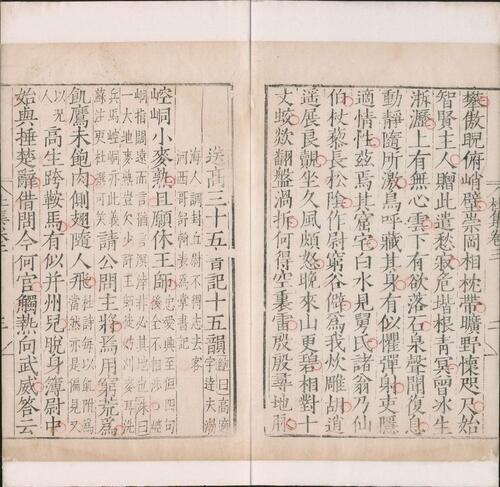 攀傲睨俯峭壁崇岡相枕帶曠野懷咫尺始
智賢主人贈此遣愁寂危堦根青冥曾冰生
淅瀝上有無心雲下有欲落石泉聲聞復息
動靜隨所激鳥呼藏其身有似懼彈射吏隱
適情性茲焉其窟宅白水見舅氏諸翁乃仙
伯杖藜長松陰作尉窮谷僻爲我炊雕胡逍
遥展良覿坐久風頗怒晚來山更碧相對十
丈蛟欻翻盤渦拆何得空裏雷殷殷尋地脉
送高三十五書記十五韻 鮑曰高適字達夫渤
海人調封丘尉不得志去客
河西哥舒翰表爲掌書記
崆峒小麥熟且願休王師
請公問主將焉用窮荒爲
飢鷹未飽肉側翅隨人飛
高生跨鞍馬有似并州兒脫身簿尉中
始與捶楚辭借問今何官觸熱向武威答云